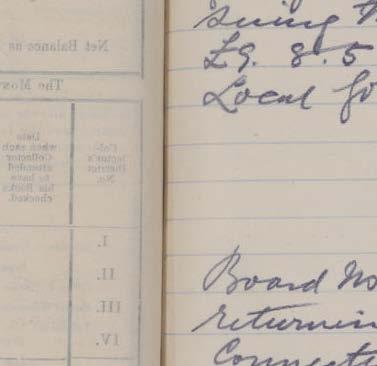 Net Balance as
The Mon
Date when each Collector attended to have his Books checked.
Collector's District No.
I.
II.
III.
IV.
£9. 8. 5
Local Go
Board No
returnin
Connecte